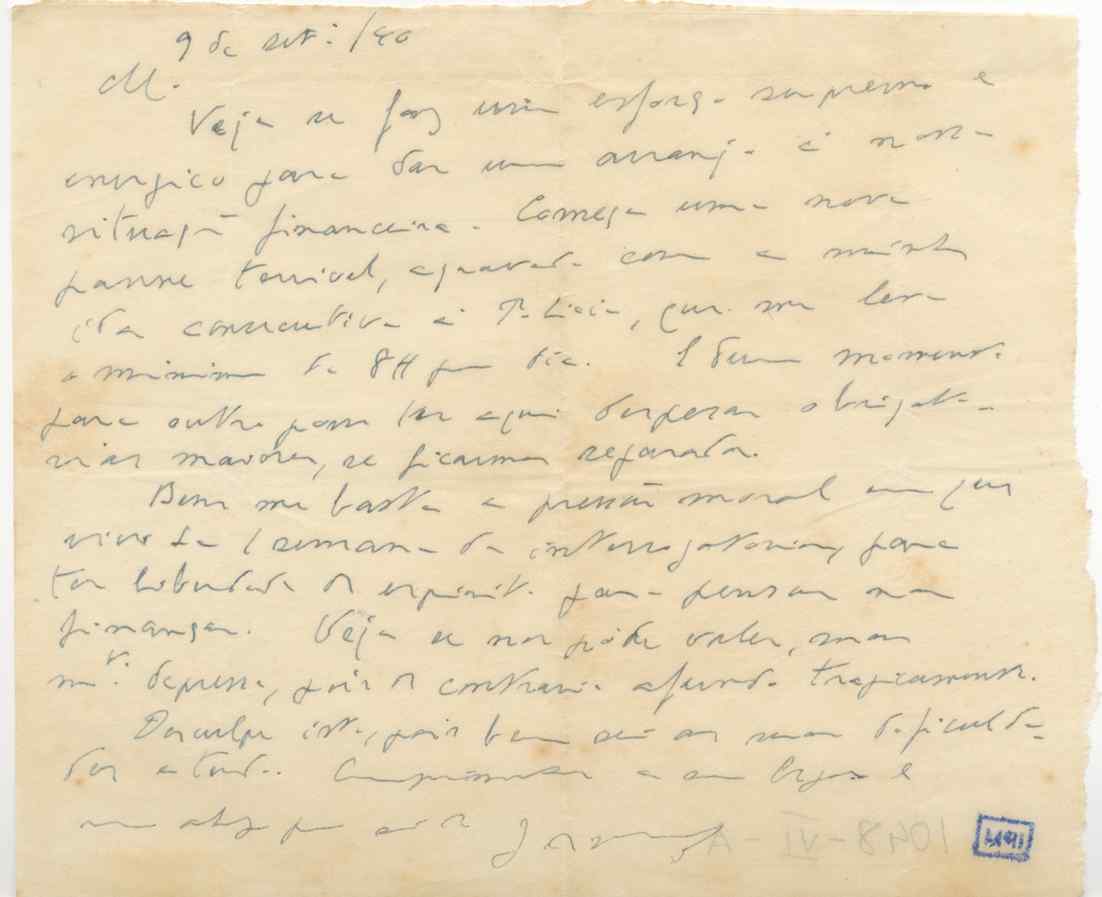 9 de set.: /40
M.
Veja se faz um esforço supremo e
energico para dar um arranjo á nossa
situação financeira. Começa uma nova
panne terrivel, agravada com a minha
ida consecutiva á Policia, que me leva
o minimo de 8H por dia. E dum momento
para outro posso ter aqui despesas obrigato-
rias maiores, se ficarmos separados.
Bem me basta a pressão moral em que
vivo ha 1 semana de interrogatorios, para
ter liberdade de espirito para pensar nas
finanças. Veja se nos póde valer, mas
mto. depressa, pois do contrario afundo tragicamente.
Desculpe isto, pois bem sei as suas deficulda-
des atuais. Cumprimentos a sua Esposa e
um abço
1048-VI A